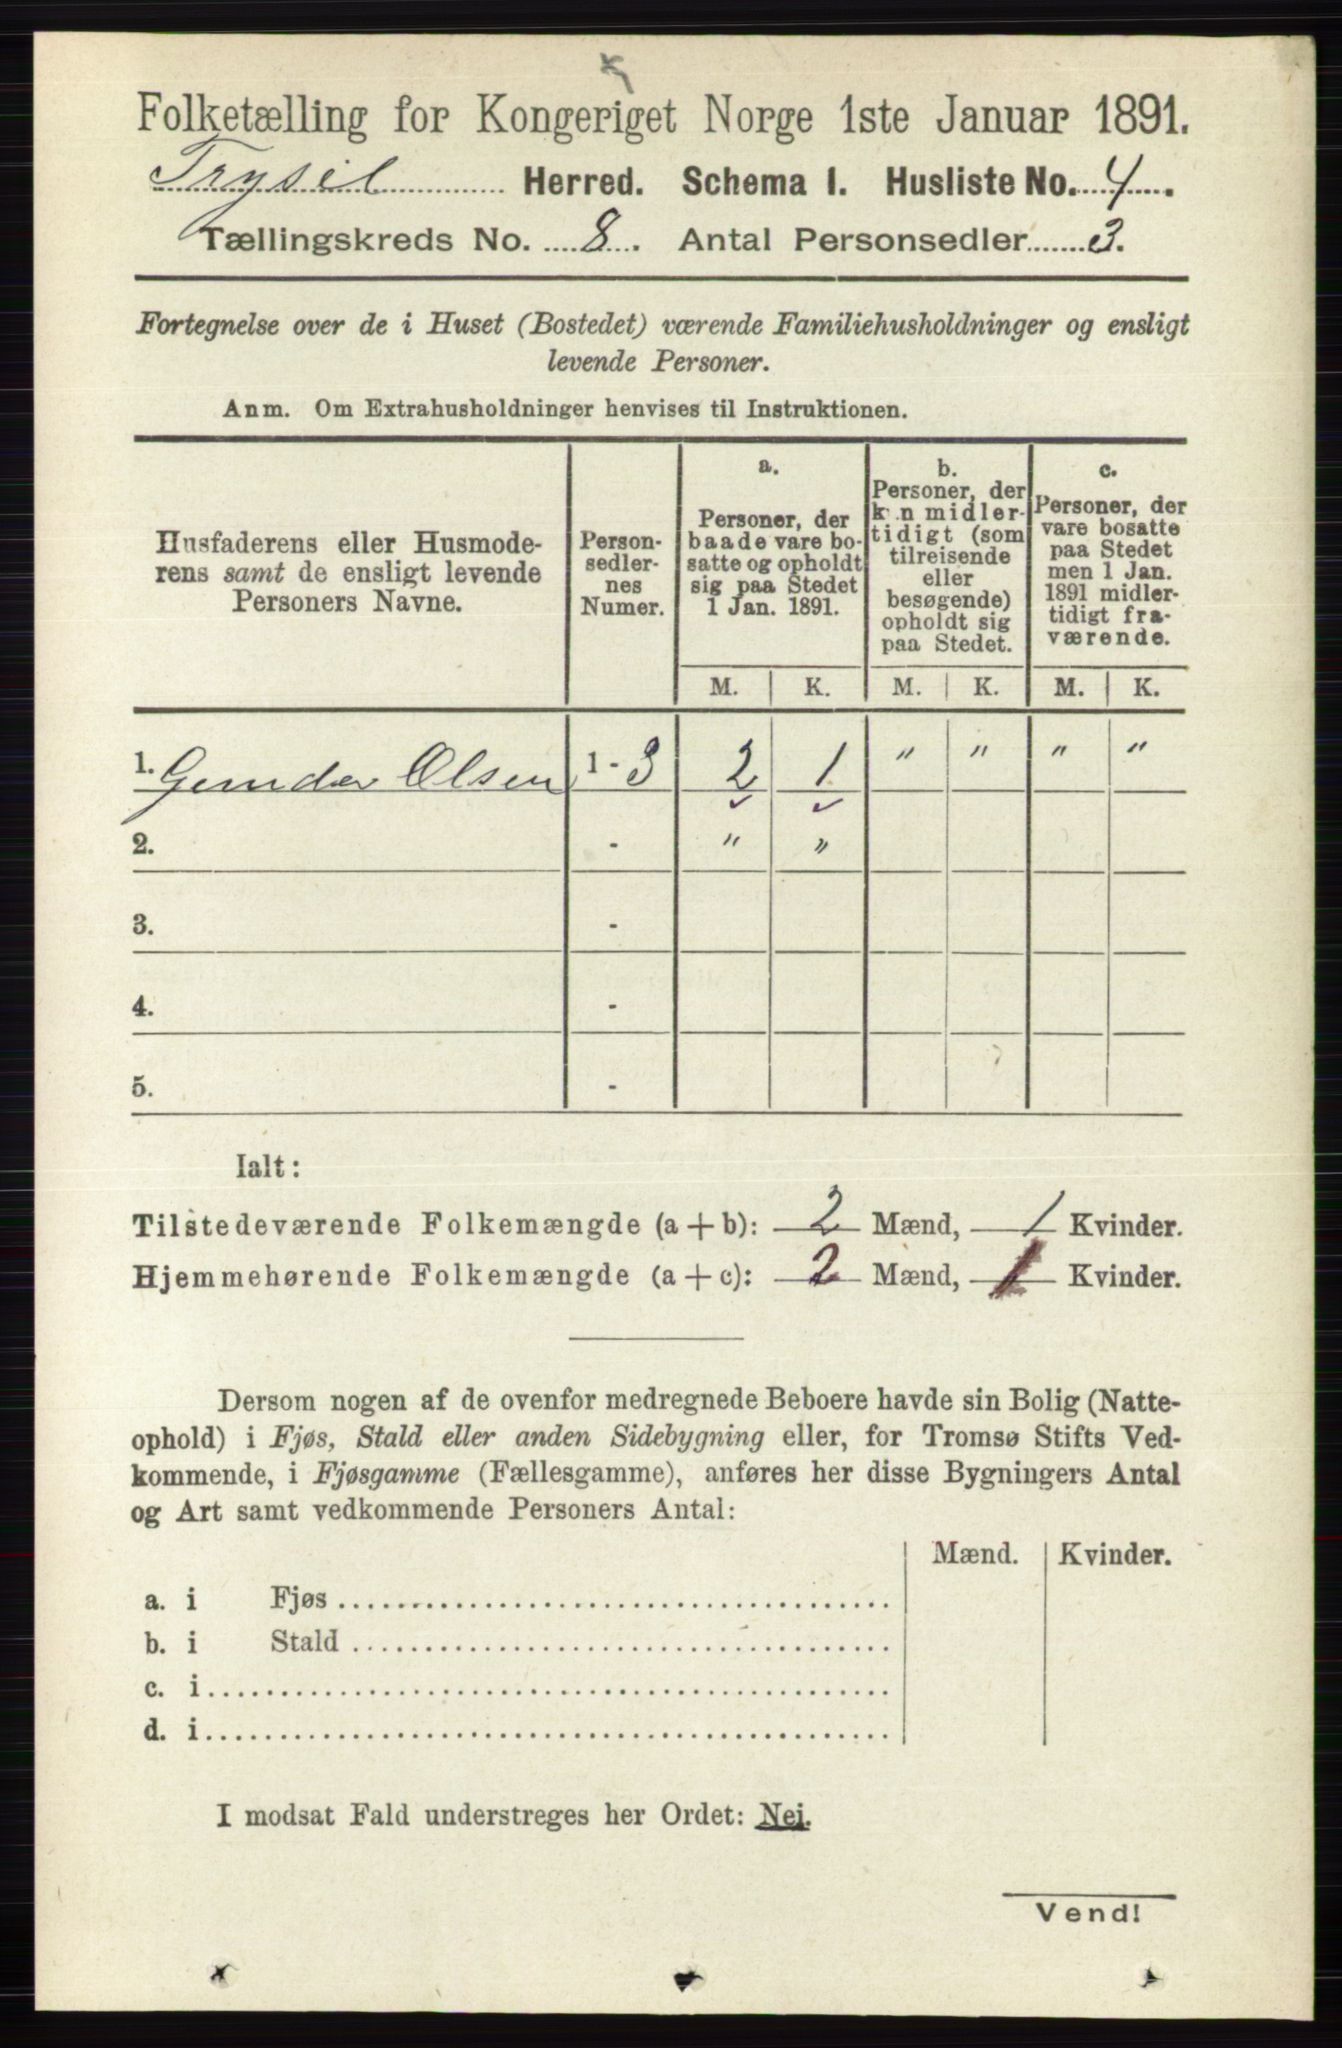 Folketælling for Kongeriget Norge 1ste Januar 1891.
Trysil Herred. Schema I. Husliste No. 4.
Tællingskreds No. 8. Antal Personsedler 3.
Fortegnelse over de i Huset (Bostedet) værende Familiehusholdninger og ensligt
levende Personer.
Anm. Om Extrahusholdninger henvises til Instruktionen.
Husfaderens eller Husmode-
rens samt de ensligt levende
Personers Navne.
Person-
sedler-
nes
Numer.
a.
Personer, der
baade vare bo-
satte og opholdt
sig paa Stedet
1 Jan. 1891.
b.
Personer, der
kun midler-
tidigt (som
tilreisende
eller
besøgende)
opholdt sig
paa Stedet.
c.
Personer, der
vare bosatte
paa Stedet
men 1 Jan.
1891 midler-
tidigt fra-
værende.
M. K. M. K. M. K.
1. Olsen 1 - 3 2 1 " " " "
2. - " "
3. -
4. -
5. -
Ialt:
Tilstedeværende Folkemængde (a + b): 2 Mænd, 1 Kvinder.
Hjemmehørende Folkemængde (a + c): 2 Mænd, 1 Kvinder.
Dersom nogen af de ovenfor medregnede Beboere havde sin Bolig (Natte-
ophold) i Fjøs, Stald eller anden Sidebygning eller, for Tromsø Stifts Ved-
kommende, i Fjøsgamme (Fællesgamme), anføres her disse Bygningers Antal
og Art samt vedkommende Personers Antal:
Mænd. Kvinder.
a. i Fjøs
b. i Stald
c. i
d. i
I modsat Fald understreges her Ordet: Nei.
Vend!